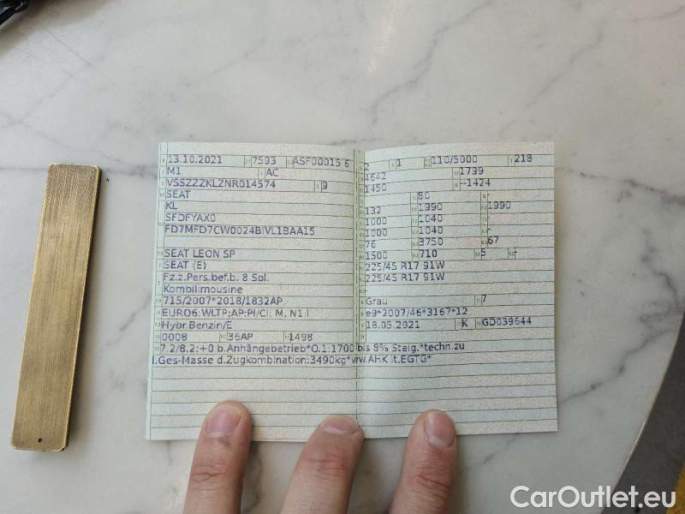 13.10.2021 7593 ASF00015 6
M1 AC
VSSZZZKLZNR014574 9
SEAT
KL
SFDFYAX0
FD7MFD7CW0024BIVL1BAA15
SEAT LEON SP
SEAT (E)
Fz.z.Pers.bef.b. 8 Spl.
Kombilimousine
715/2007*2018/1832AP
EURO6;WLTP;AP;PI/CI; M, N1 I
Hybr.Benzin/E
0008 36AP 1498
7.2/8.2:+0 b.Anhängebetrieb*O.1:1700 bis 8% Steig.*techn.zu
l.Ges-Masse d.Zugkombination:3490kg*vw.AHK lt.EGTG*
2 1 110/5000 218
4642 1739
1450 -1424
80
132 1990 1990
1000 1040 -
1000 1040 -
76 3750 67
1500 710 5 -
225/45 R17 91W
225/45 R17 91W
Grau 7
e9*2007/46*3167*12
18.05.2021 K GD039644
CarOutlet.eu